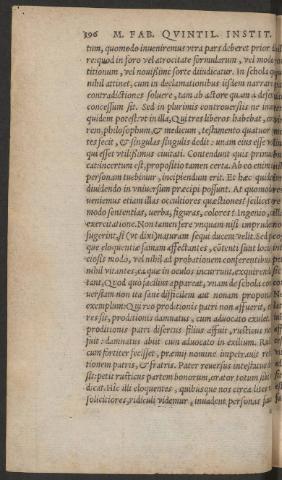 396 M. FAB. QVINTIL. INSTIT.
tum, quomodo inueniremus vtra pars deberet prior
re: quod in foro vel atrocitate formularum, vel modo
titionum, vel nouissime sorte diiudicatur. In schola
nihil attinet, cum in declamationibus iisdem narrare
contradictiones soluere, tam ab actore quam à
concessum sit. Sed in plurimis controuersiis ne
quidem potest: vt in illa, Qui tres liberos habebat,
rem, philosophum, & medicum, testamento quatuor
tes fecit, & singulas singulis dedit: vnam eius esse
qui esset vtilissimus ciuitati. Contendunt: quis primus
cat incertum est, propositio tamen certa. Ab eo enim
personam tuebimur, incipiendum erit. Et hæc quidem
diuidendo in vniuersum præcipi possunt. At quomodo
ueniemus etiam illas occultiores quæstiones? scilicet
modo sententias, uerba, figuras, colores: ingenio,
exercitatione. Non tamen fere vnquam nisi imprudentem
fugerint, si (vt dixi) naturam sequi ducem velit. Sed
que eloquentiæ famam affectantes, cōtenti sunt locis
ciosis modo, vel nihil ad probationem conferentibus
nihil vitantes, ea quæ in oculos incurrunt, exquirenda
tant. Quod quo facilius appareat, vnam de schola
uersiam non ita sane difficilem aut nouam proponam
exemplum: Qui reo proditionis patri non affuerit,
res sit, proditionis damnatus, cum aduocato exulet.
proditionis patri disertus filius affuit, rusticus non
fuit: damnatus abiit cum aduocato in exilium.
cum fortiter fecisset, præmij nomine impetrauit
tionem patris, & fratris. Pater reuersus intestatus
sit: petit rusticus partem bonorum, orator totum
dicat. Hîc illi eloquentes, quibusque nos circa lites
solicitiores, ridiculi videmur, inuadent personas